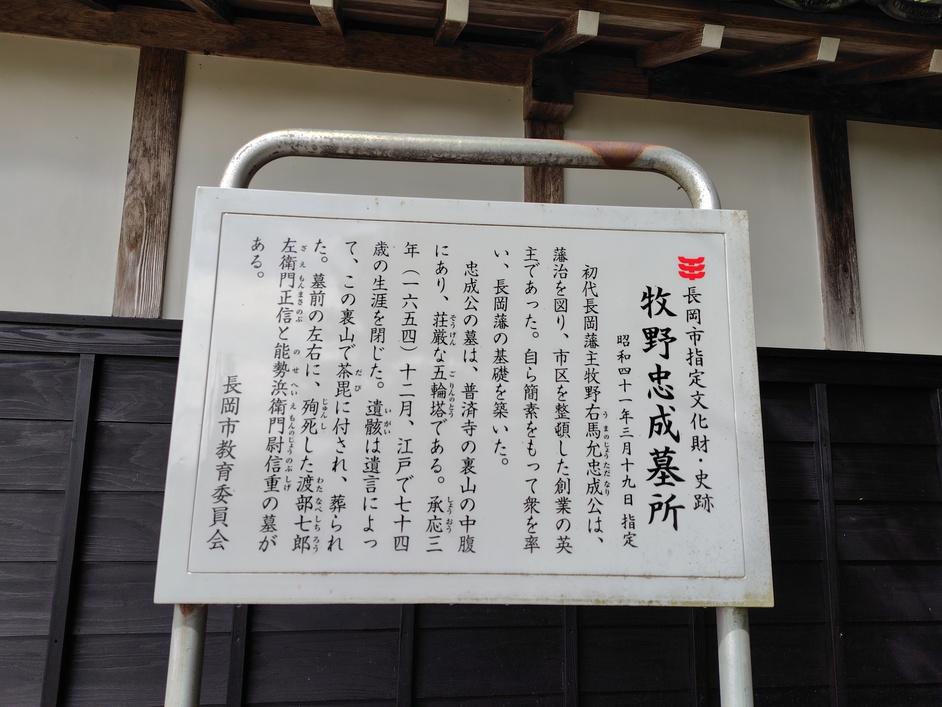 長岡市指定文化財・史跡
牧野忠成墓所
昭和四十一年三月十九日 指定
初代長岡藩主牧野右馬允忠成公は、
藩治を図り、市区を整頓した創業の英
主であった。自ら簡素をもって衆を率
い、長岡藩の基礎を築いた。
忠成公の墓は、普済寺の裏山の中腹
にあり、荘厳な五輪塔である。承応三
年(一六五四)十二月、江戸で七十四
歳の生涯を閉じた。遺骸は遺言によっ
て、この裏山で茶毘に付され、葬られ
た。墓前の左右に、殉死した渡部七郎
左衛門正信と能勢浜衛門尉信重の墓が
ある。
長岡市教育委員会